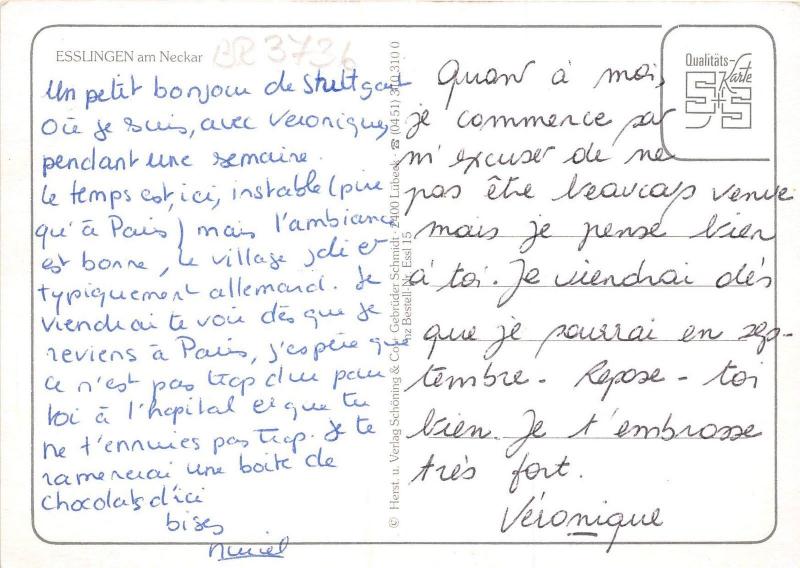 ESSLINGEN am Neckar
BR 3736
Un petit bonjour de Stuttgart
Où je suis, avec Veronique,
pendant une semaine.
le temps est, ici, instable (pire
qu'à Paris) mais l'ambiance
est bonne, le village joli et
typiquement allemand. Je
viendrai te voir dès que je
reviens à Paris, j'espère que
ce n'est pas trop dur pour
toi à l'hopital et que tu
ne t'ennuies pas trop. Je te
ramenerai une boite de
chocolats d'ici
bises
Muriel
© Herst. u. Verlag Schöning & Co + Gebrüder Schmidt · 2400 Lübeck · ☎ (0451) 310 310 0
nz Bestell-Nr. Essl 15
Qualitäts-Karte
S+S
Quant à moi,
je commence par
m'excuser de ne
pas être beaucoup venue
mais je pense bien
à toi. Je viendrai dés
que je pourrai en sep-
tembre. Repose-toi
bien. Je t'embrasse
très fort.
Véronique